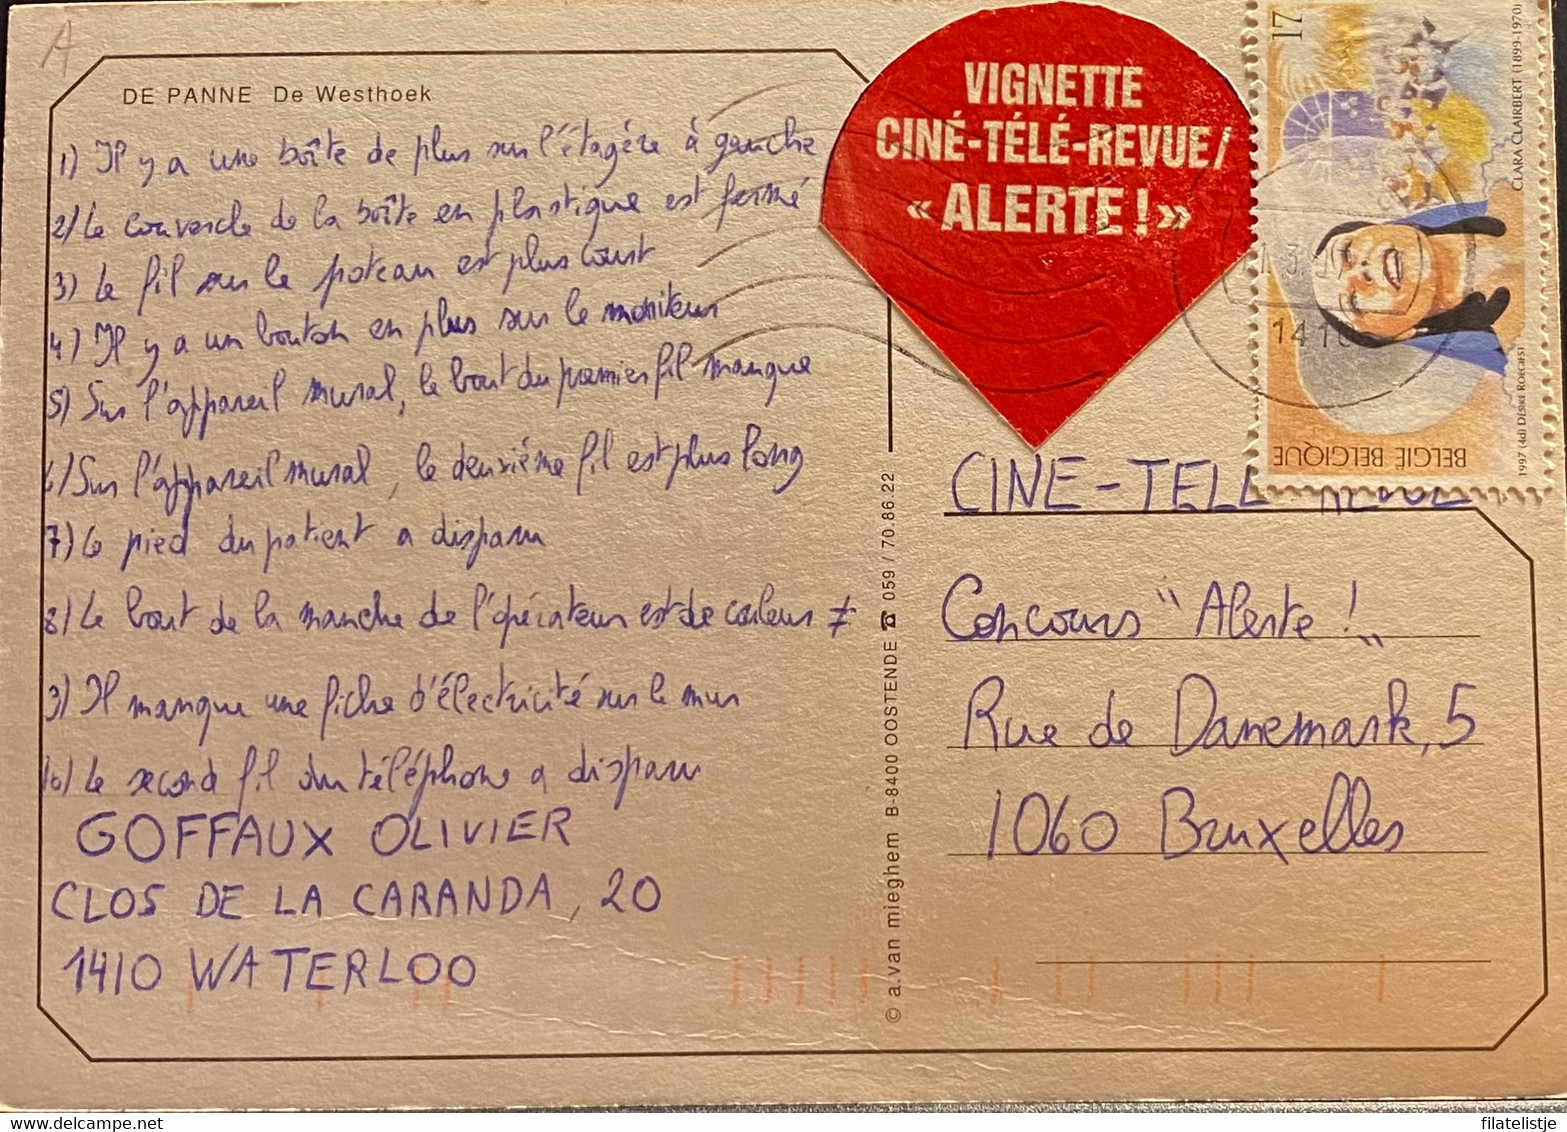 A
DE PANNE De Westhoek
1) Il y a une boîte de plus sur l'étagère à gauche
2) Le couvercle de la boîte en plastique est fermé
3) Le fil sur le poteau est plus court
4) Il y a un bouton en plus sur le moniteur
5) Sur l'appareil mural, le bout du premier fil manque
6) Sur l'appareil mural, le deuxième fil est plus long
7) Le pied du patient a disparu
8) Le bout de la manche de l'opérateur est de couleur ≠
9) Il manque une fiche d'électricité sur le mur
10) Le second fil du téléphone a disparu
GOFFAUX OLIVIER
CLOS DE LA CARANDA, 20
1410 WATERLOO
© a.van mieghem B-8400 OOSTENDE ☎ 059 / 70.86.22
VIGNETTE
CINÉ-TÉLÉ-REVUE/
« ALERTE ! »
17
CLARA CLAIRBERT (1899-1970)
BELGIË BELGIQUE
1997 (4d) DÉSIRÉ ROEGIEST
14 10
CINE-TELE
Concours "Alerte !"
Rue de Danemark, 5
1060 Bruxelles
filatelistje